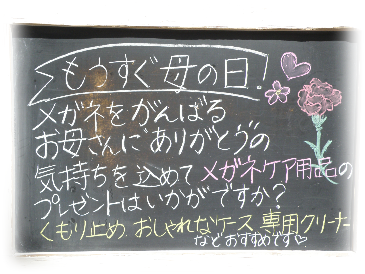 もうすぐ母の日!
メガネをがんばる
お母さんに ありがとうの
気持ちを込めて メガネケア用品の
プレゼントはいかがですか?
くもり止め. おしゃれなケース. 専用クリーナー
などおすすめです♡